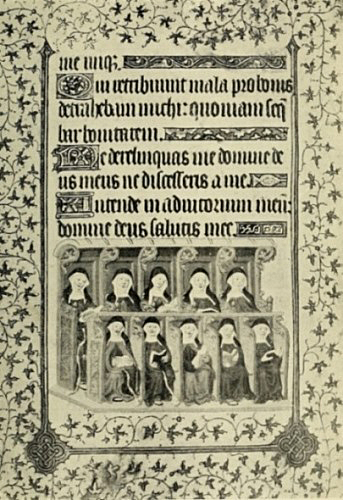 me iniq̢.
Qui retribuunt mala pro bonis
detrahebant michi: quoniam seq̄
bar bonitatem.
Ne derelinquas me domine de
us meus ne discesseris a me.
Intende in adiutorium meū:
domine deus salutis mee.